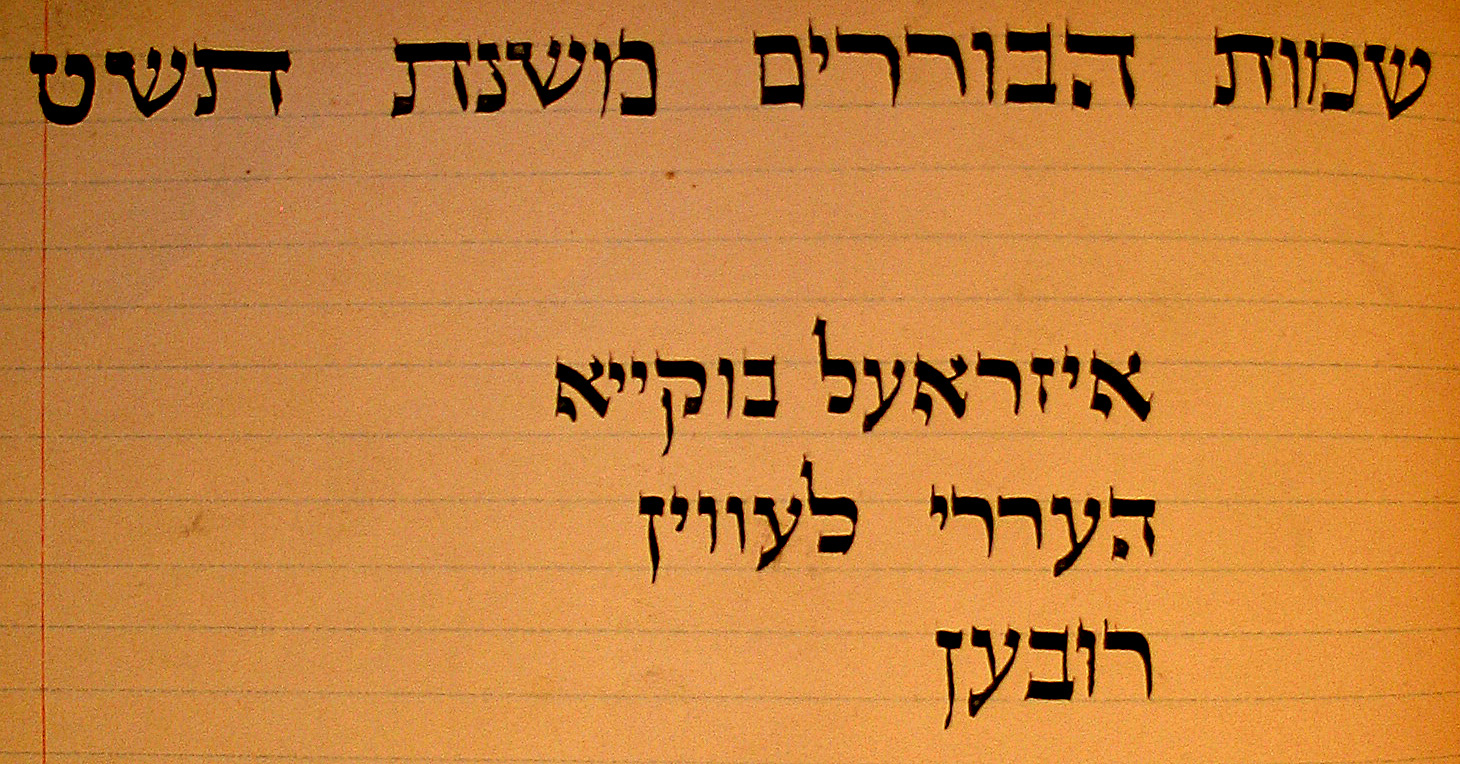 שמות הבוררים משנת תשט
איזראעל בוקייא
העררי לעווין
רובען